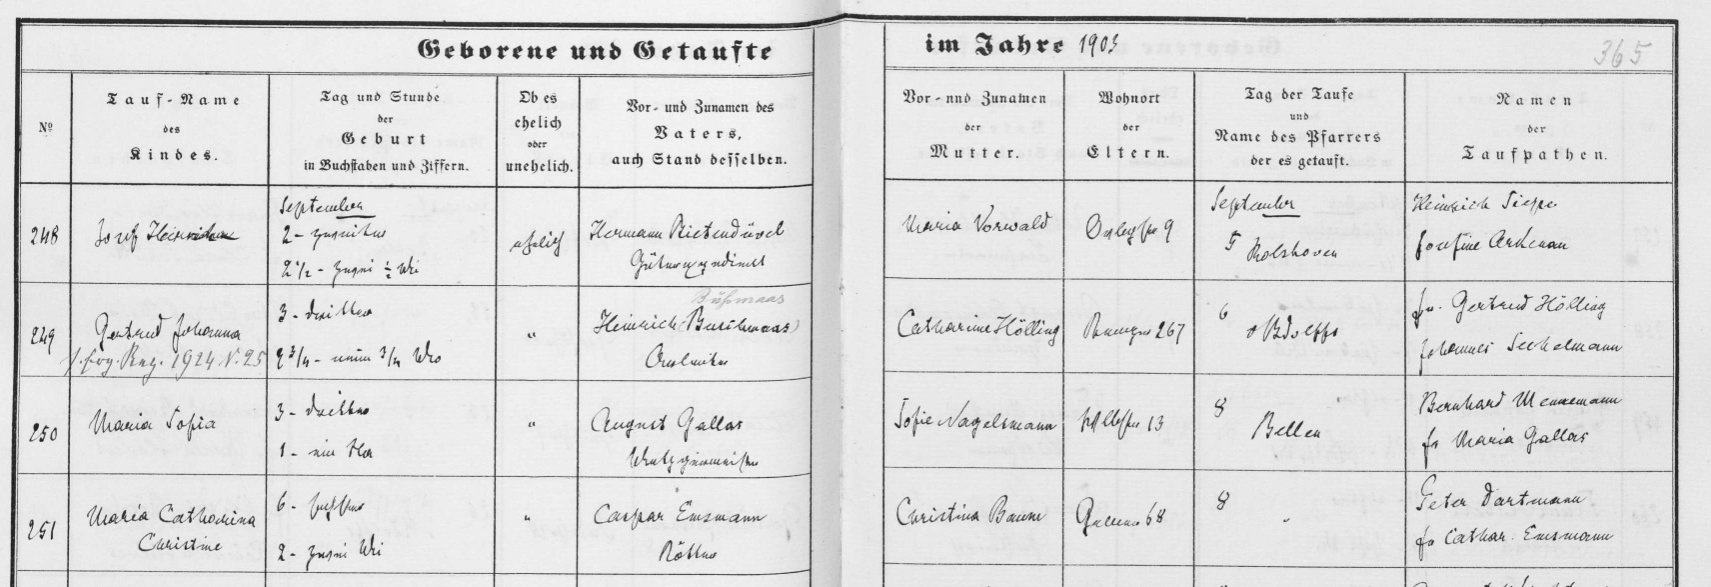 Geborene und Getaufte im Jahre 1903
365
№
Tauf-Name
des
Kindes.
Tag und Stunde
der
Geburt
in Buchstaben und Ziffern.
Ob es
ehelich
oder
unehelich.
Vor- und Zunamen des
Vaters,
auch Stand desselben.
Vor- nnd Zunamen
der
Mutter.
Wohnort
der
Eltern.
Tag der Taufe
und
Name des Pfarrers
der es getauft.
Namen
der
Taufpathen.
248
Josef
September
2 - zweiten
2 1/2 - zwei 1/2 Uhr
ehelich
Hermann Rietendüvel
Maria Vorwald
9
September
5
Rolshoven
Heinrich Sieppe
Josefine Arkenau
249
Gertrud Johanna
1924 N. 25
3 - dritten
9 3/4 - neun 3/4 Uhr
"
Bußmaas
Heinrich (Buschmaas)
Catharine Hölling
267
6
Gertrud Hölling
Johannes
250
Maria Sofia
3 - dritten
1 - ein Uhr
"
August Gallas
Sofie Nagelsmann
13
8
Bellen
Bernhard Mennemann
fr Maria Gallas
251
Maria Catharina
Christine
6 - sechsten
2 - zwei Uhr
"
Caspar Emsmann
Christina Baune
68
8
"
Peter Dartmann
fr Cathar. Emsmann